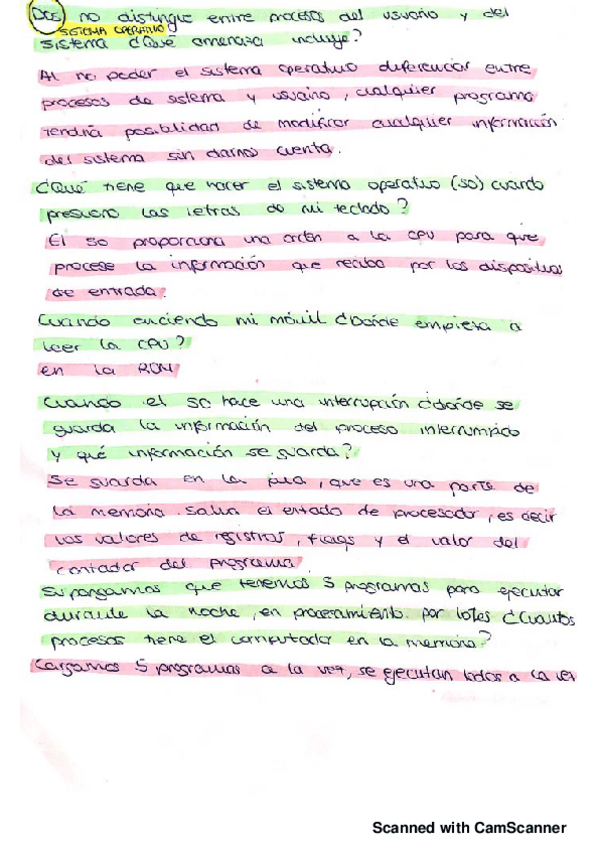 no distingue entre procesos del usuario y del
SISTEMA OPERATIVO
sistema ¿Qué amenaza incluye?
Al no poder el sistema operativo diferenciar entre
procesos de sistema y usuario, cualquier programa
tendría posibilidad de modificar cualquier información
del sistema sin darnos cuenta.
¿Qué tiene que hacer el sistema operativo (so) cuando
presiono las letras de mi teclado?
El so proporciona una orden a la CPU para que
procese la información que reciba por los dispositivos
de entrada.
Cuando enciendo mi móvil ¿dónde empieza a
leer la CPU?
en la ROM
Cuando el SO hace una interrupción ¿dónde se
guarda la información del proceso interrumpido
y qué información se guarda?
Se guarda en la pila, que es una parte de
la memoria. Salva el estado de procesador, es decir
los valores de registros, flags y el valor del
contador del programa.
Supongamos que tenemos 5 programas para ejecutar
durante la noche, en procesamiento por lotes ¿Cuántos
procesos tiene el computador en la memoria?
Cargamos 5 programas a la vez, se ejecutan todos a la vez
Scanned with CamScanner